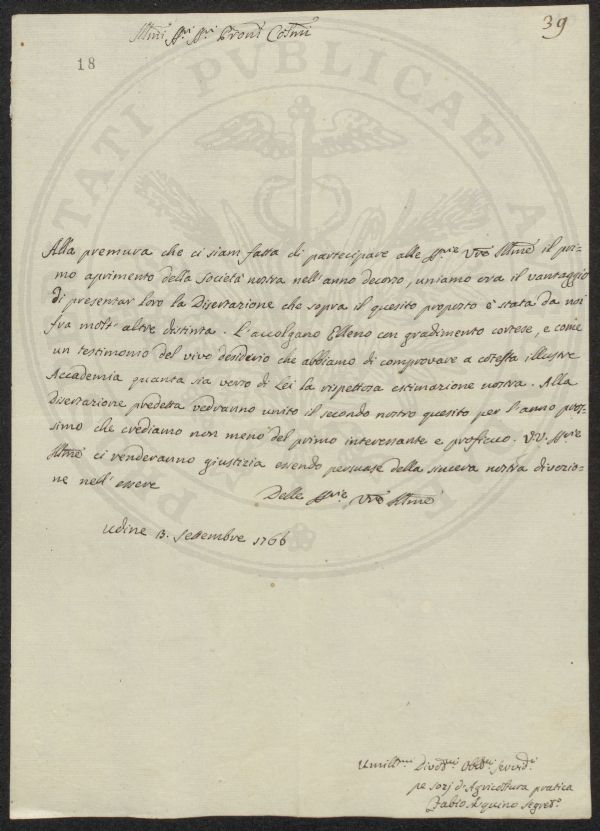 39
Illmi Ssri Ssri Proni Colmi
18
Alla premura che ci siam fatta di partecipare alle Ssrie Vre Illme il pri-
mo aprimento della Società nostra nell'anno decorso, uniamo ora il vantaggio
di presentar loro la Disertazione che sopra il quesito proposto è stata da noi
fra molt'altre distinta. L'accolgano Elleno con gradimento cortese, e come
un testimonio del vivo desiderio che abbiamo di comprovare a cotesta illustre
Accademia quanta sia verso di Lei la rispettosa estimazione nostra. Alla
Disertazione predetta vedranno unito il secondo nostro quesito per l'anno pros-
simo che crediamo non meno del primo interessante e proficuo. VV. Ssrie
Illme ci renderanno giustizia essendo persuase della sincera nostra divozio-
ne nell'essere
Delle Ssrie Vre Illme
Udine 13. Settembre 1766
Umillmi Divotmi Obblmi Servidri
pe sozj d'Agricoltura pratica
Fabio Asquino Segreto
TATI PVBLICAE